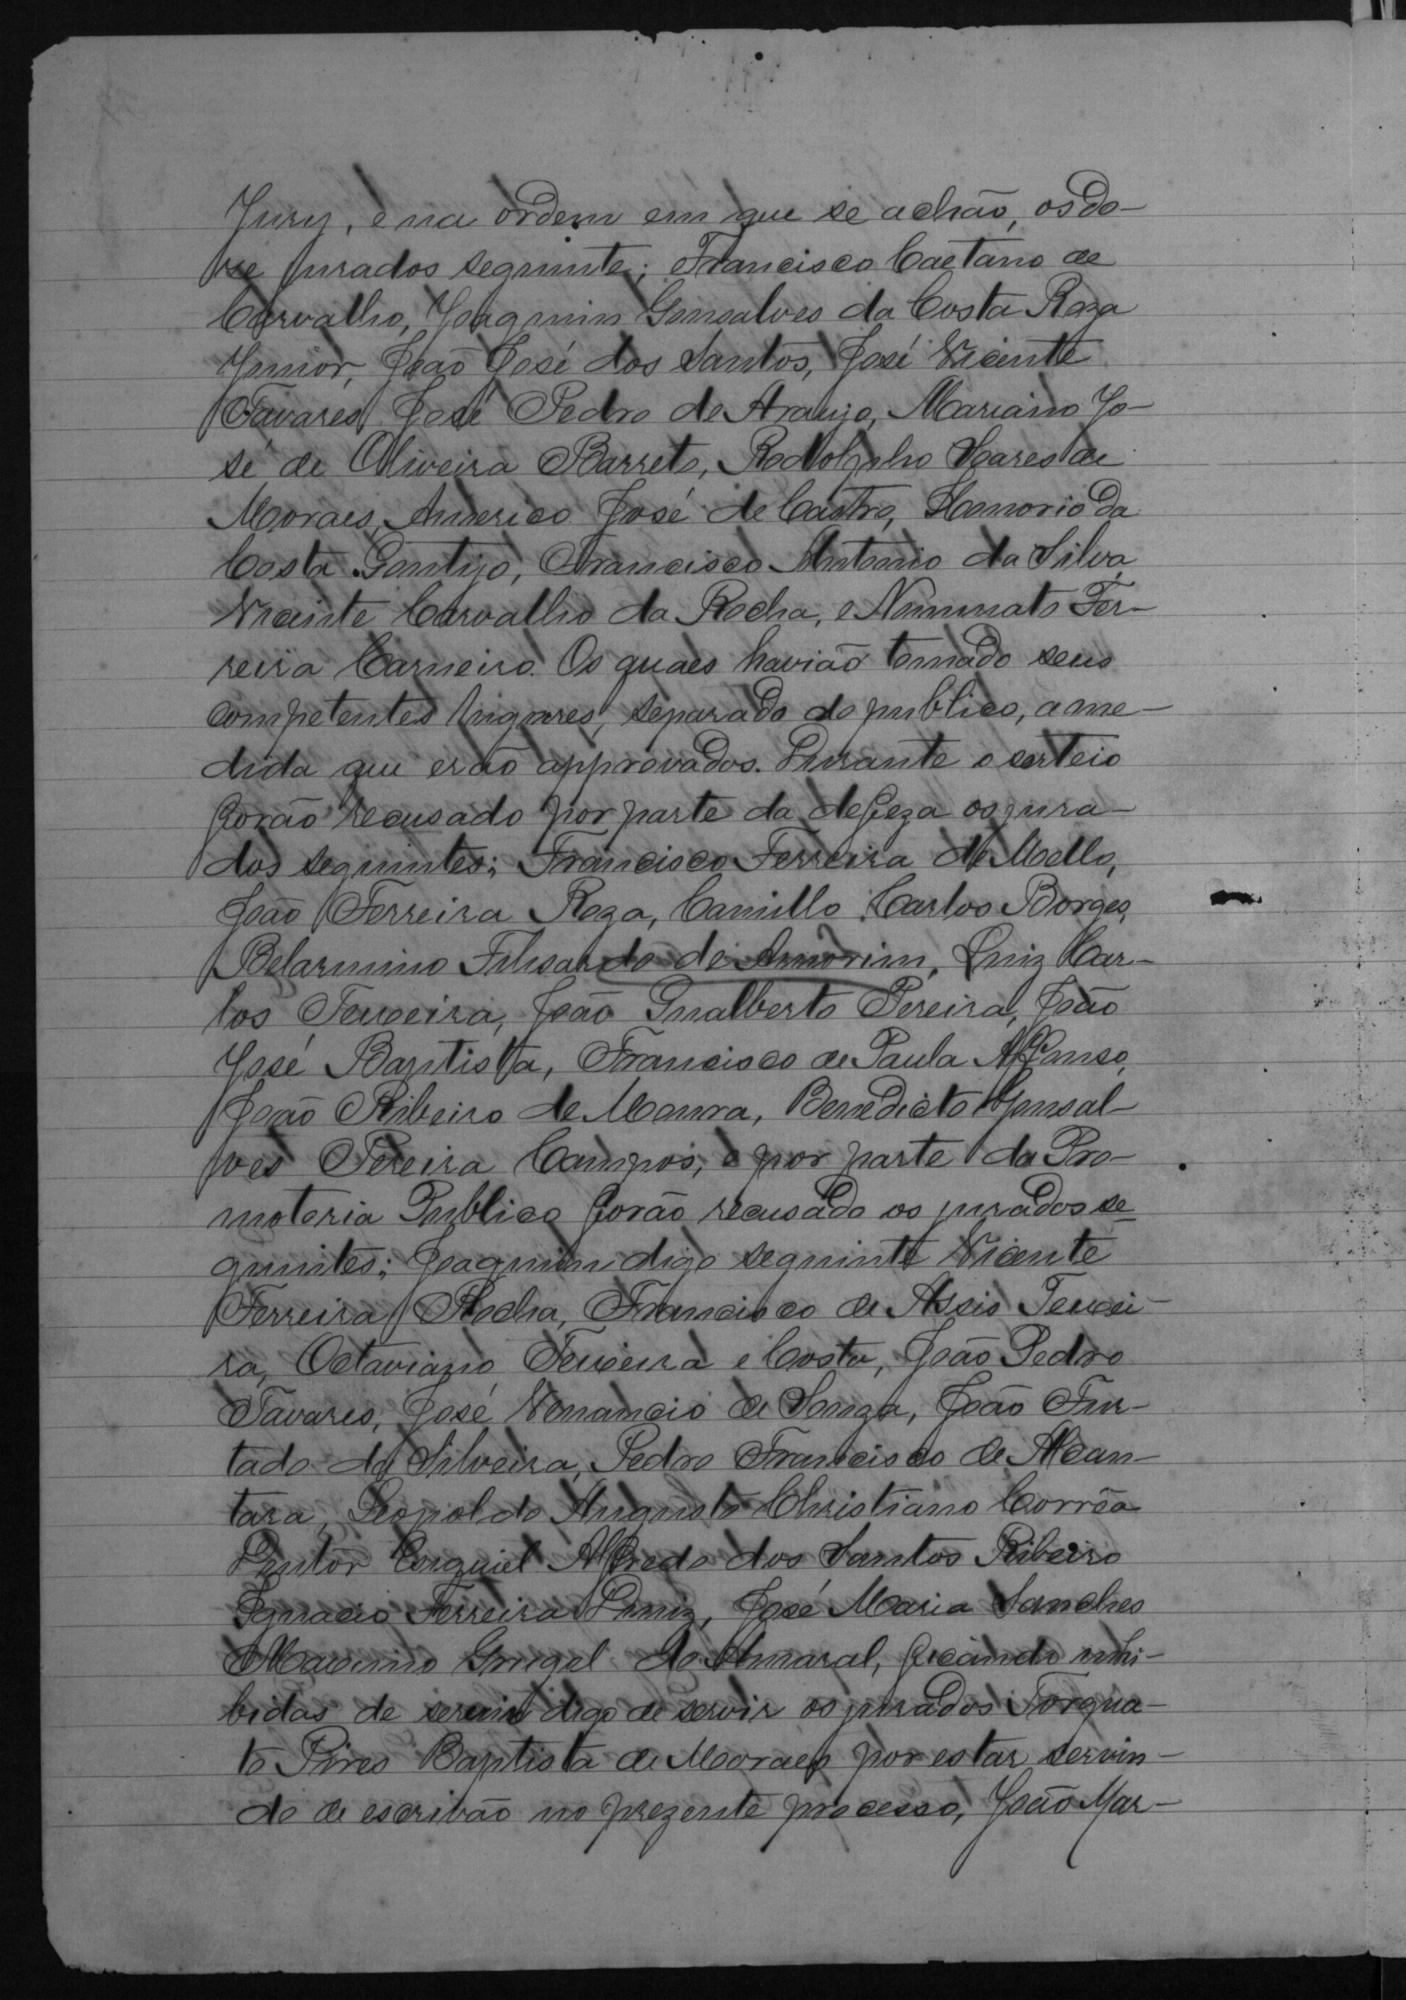 Jury, e na ordem em que se achão, os do-
ze jurados seguinte; Francisco Caetano de
Carvalho, Joaquim Gonsalves da Costa Roza
Junior, João José dos Santos, José Vicente
Tavares, José Pedro de Araujo, Mariano Jo-
sé de Oliveira Barreto, Rodolpho Soares de
Moraes, Americo José de Castro, Honorio da
Costa Gontijo, Francisco Antonio da Silva
Vicente Carvalho da Rocha, e Nominato Fer-
reira Carneiro. Os quaes havião tomado seus
competentes lugares, separado do publico, a me-
dida que erão approvados. Durante o sorteio
forão recusado por parte da defeza os jura-
dos seguintes; Francisco Ferreira de Mello,
João Ferreira Roza, Camillo Carlos Borges,
Belarmino de Amorim, Luiz Car-
los Teixeira, João Gualberto Pereira, João
José Baptista, Francisco de Paula Affonso,
João Ribeiro de Moura, Benedicto Gonsal-
ves Pereira Campos, e por parte da Pro-
motoria Publico forão recusado os jurados se-
guintes; Joaquim digo seguinte Vicente
Ferreira Rocha, Francisco de Assis Teixei-
ra, Octaviano Teixeira e Costa, João Pedro
Tavares, José Venancio de Souza, João Fur-
tado da Silveira, Pedro Francisco de Alcan-
tara, Leopoldo Augusto Christiano Corrêa
Doutor Ezequiel Alfredo dos Santos Ribeiro
Ignacio Ferreira Diniz, José Maria Sanches
Maximo Gurgel do Amaral, ficando inhi-
bidas de serem digo de servir os jurados Torqua-
to Pires Baptista de Moraes por estar servin-
do de escrivão no prezente processo, João Mar-